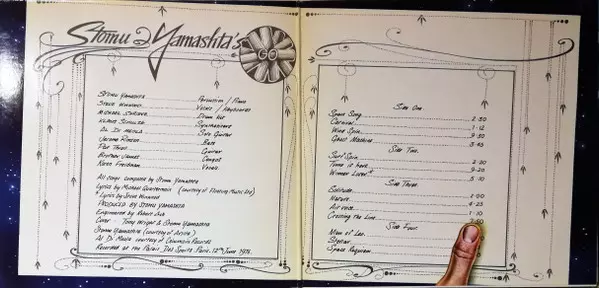 Stomu Yamashta's
GO
Stomu Yamashta Percussion / Piano
Steve Winwood Vocals / Keyboards
Michael Shrieve Drum Kit
Klaus Schulze Synthesisers
Al Di Meola Solo Guitar
Jerome Rimson Bass
Pat Thrall Guitar
Brother James Congas
Karen Friedman Vocals
All songs composed by Stomu Yamashta
Lyrics by Michael Quartermain (courtesy of Floating Music Ltd)
Lyrics by Steve Winwood
Produced by Stomu Yamashta
Engineered by Robert Ash
Cover - Tony Wright & Stomu Yamashta
Stomu Yamashta (courtesy of Arista)
Al Di Meola courtesy of Columbia Records
Recorded at the Palais Des Sports Paris, 12th June 1976.
Side One.
Space Song 2:30
Carnival 1:12
Wind Spin 9:30
Ghost Machine 3:45
Side Two.
Surf Spin 2:20
Time is here 9:25
Winner Loser 5:10
Side Three.
Solitude 1:50
Nature 4:25
Air voice 1:10
Crossing the Line
Side Four
Man of Leo
Stellar
Space Requiem